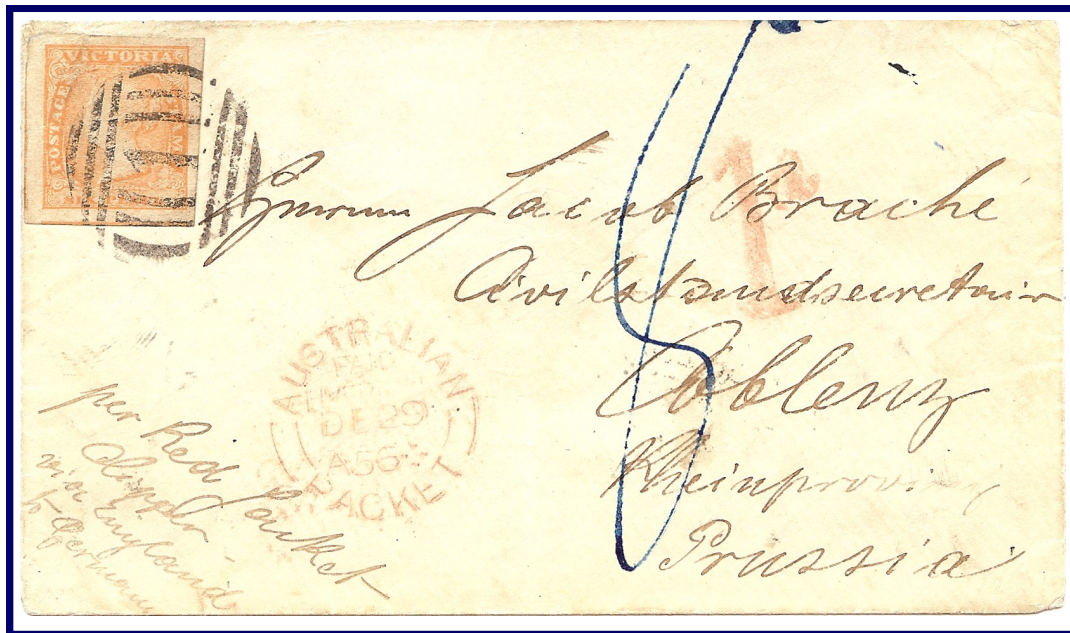 VICTORIA
POSTAGE
STAMP
1
Herrn Jacob Braché
Civilstandssecretair
Coblenz
Rheinprovinz
Prussia
AUSTRALIAN
DE 29
A56
PACKET
per Red Jacket
Clipper
via England
to Germany